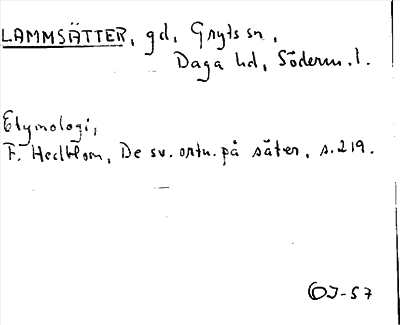 LAMMSÄTTER, gd, Gryts sn,
Daga hd, Söderm. l.
Etymologi,
F. Hedblom, De sv. ortn. på säter, s. 219.
OJ-57